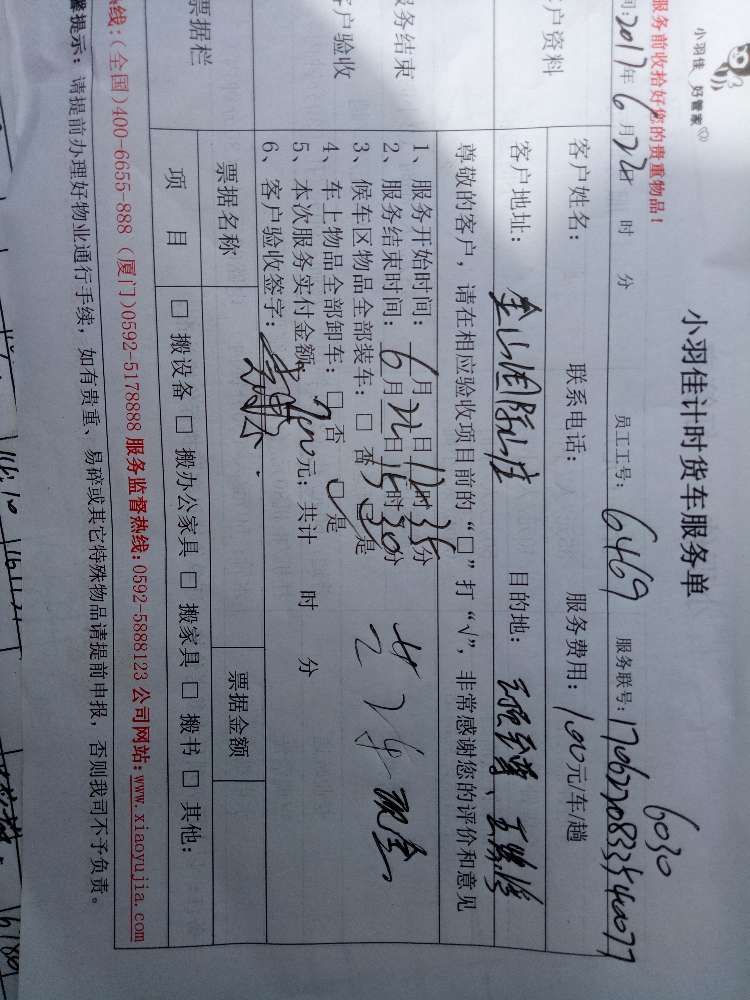 小羽佳 好管家
小羽佳计时货车服务单
服务前收拾好您的贵重物品！
间：2017年6月22 时 分 员工工号：6469 服务联号：17062208335440077
6030
户资料
客户姓名： 联系电话： 服务费用：100元/车/趟
客户地址：金山国际 目的地：
尊敬的客户，请在相应验收项目前的“□”打“√”，非常感谢您的评价和意见
务结束
客户验收
1、服务开始时间：6月 日 时35分
2、服务结束时间：6月22日15时30分
3、候车区物品全部装车：□否 □是
4、车上物品全部卸车：□否 □是
5、本次服务实付金额：200元；共计 时 分
6、客户验收签字：
现金
票据栏
票据名称 票据金额
项 目 □搬设备 □搬办公家具 □搬家具 □搬书 □其他：
热线：(全国)400-6655-888 (厦门)0592-5178888 服务监督热线：0592-5888123 公司网站：www.xiaoyujia.com
馨提示：请提前办理好物业通行手续，如有贵重、易碎或其它特殊物品请提前申报，否则我司不予负责。